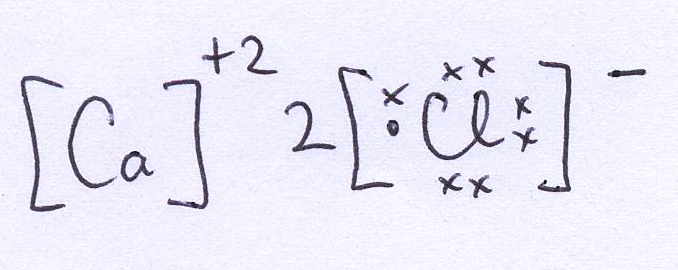 [Ca]⁺² 2[Cl]⁻